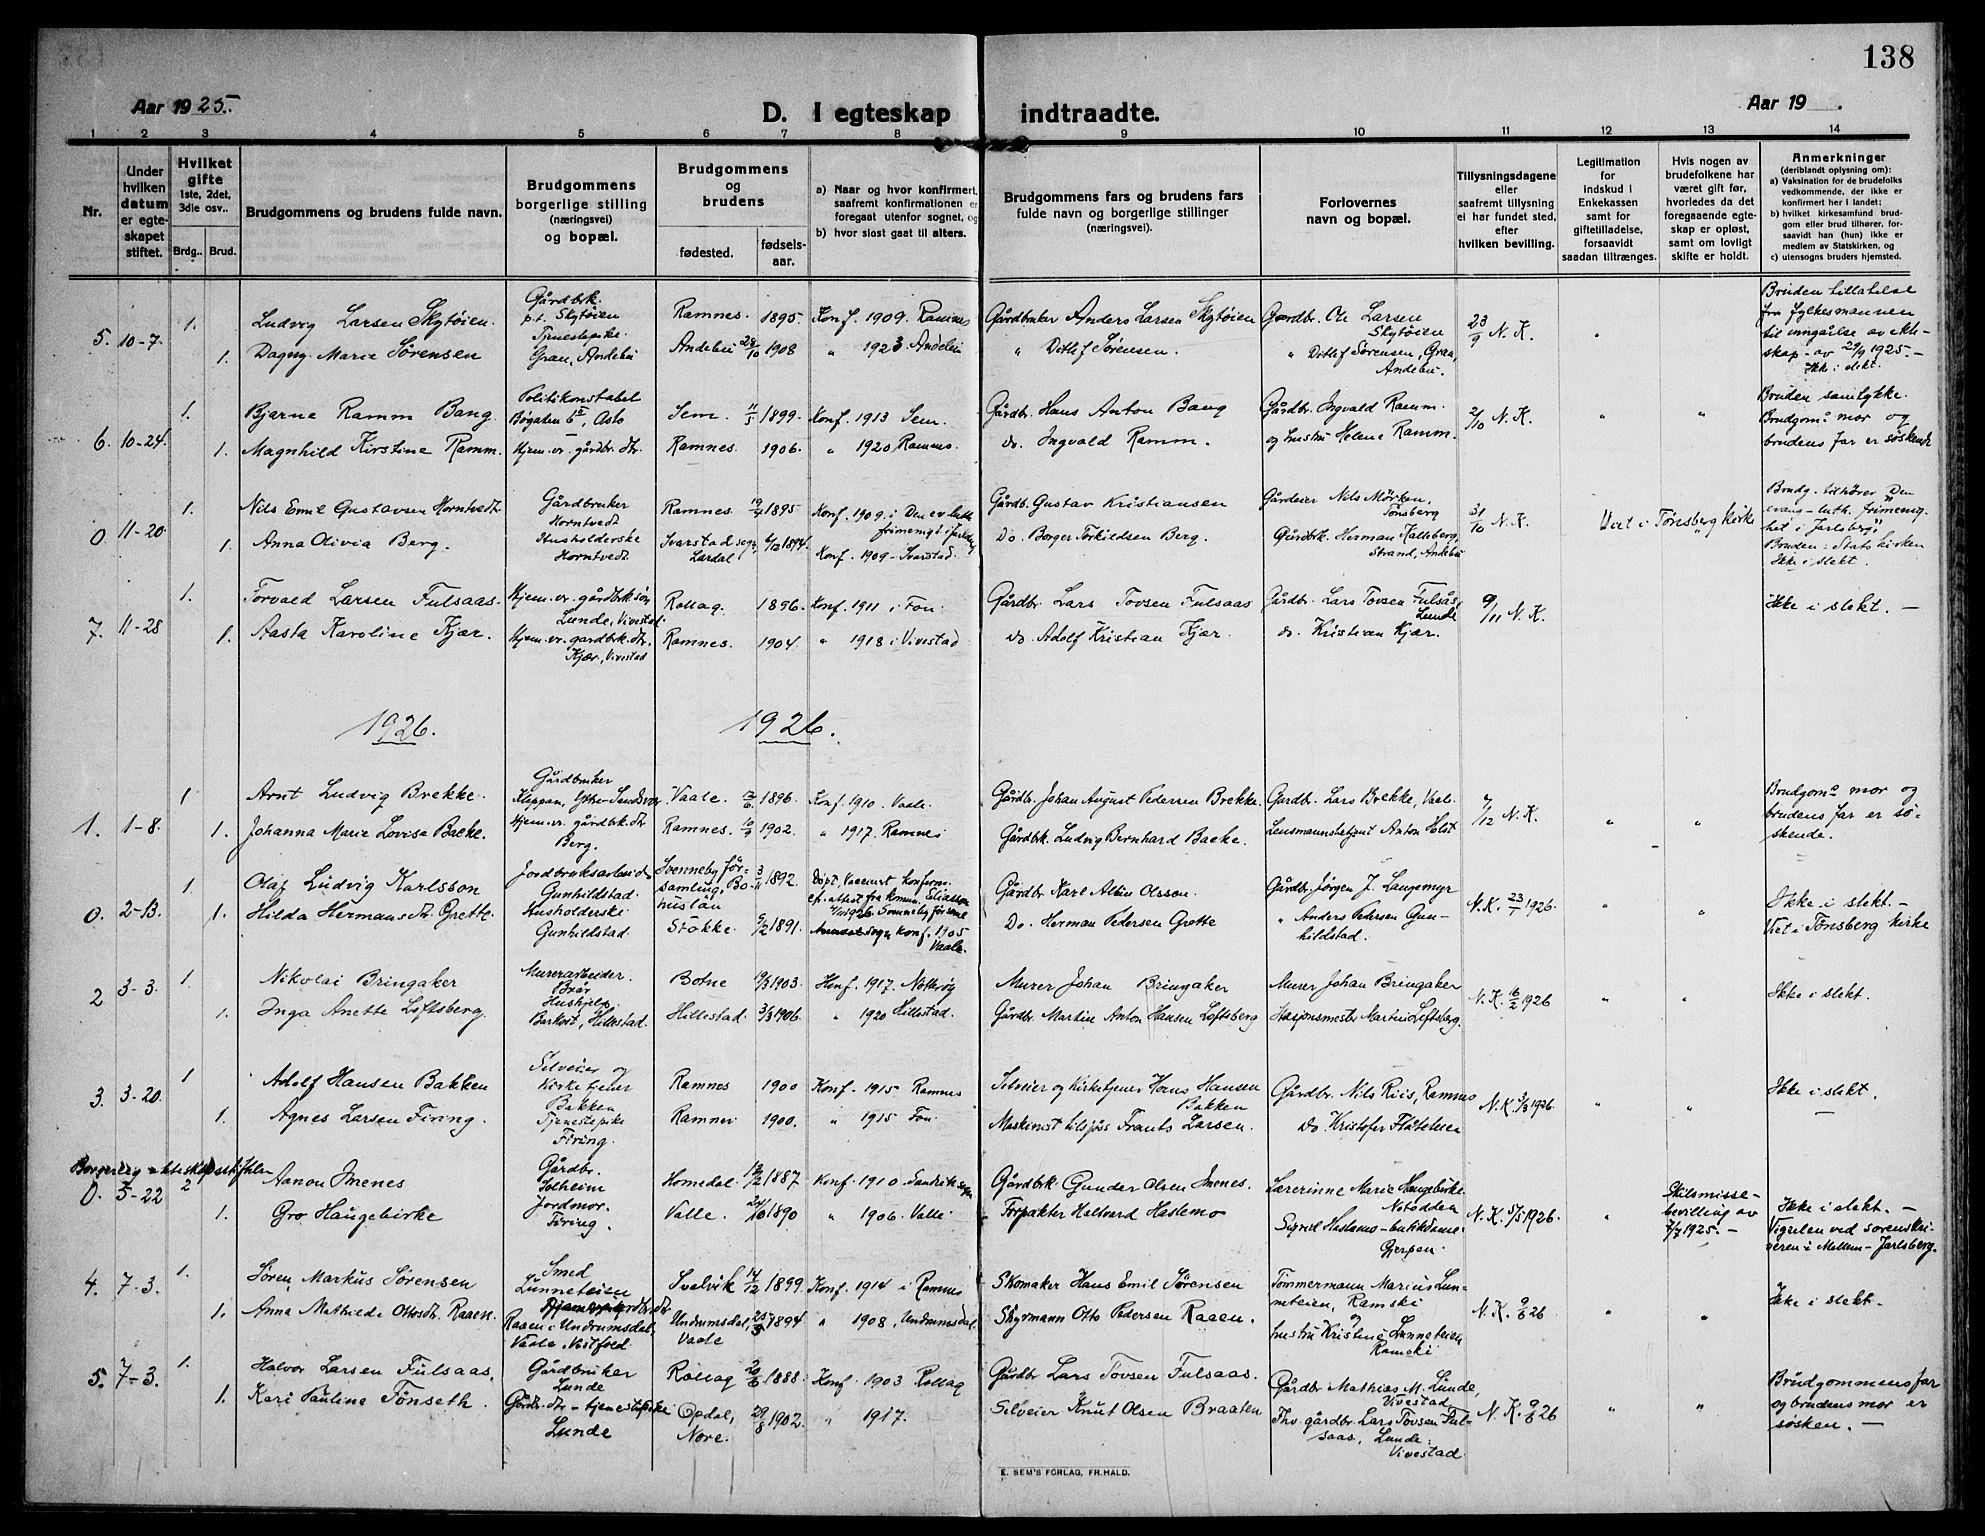 138
Aar 1925.
D. I egteskap indtraadte.
Aar 19 .
1 2 3 4 5 6 7 8 9 10 11 12 13 14
Nr.
Under hvilken datum er egteskapet stiftet.
Hvilket gifte 1ste, 2det, 3die osv..
Brdg.. Brud.
Brudgommens og brudens fulde navn.
Brudgommens borgerlige stilling (næringsvei) og bopæl.
Brudgommens og brudens
fødested. fødselsaar.
a) Naar og hvor konfirmert, saafremt konfirmationen er foregaat utenfor sognet, og
b) hvor sidst gaat til alters.
Brudgommens fars og brudens fars fulde navn og borgerlige stillinger (næringsvei).
Forlovernes navn og bopæl.
Tillysningsdagene eller saafremt tillysning ei har fundet sted, efter hvilken bevilling.
Legitimation for indskud i Enkekassen samt for giftetilladelse, forsaavidt saadan tiltrænges.
Hvis nogen av brudefolkene har været gift før, hvorledes da det foregaaende egteskap er opløst, samt om lovligt skifte er holdt.
Anmerkninger (deriblandt oplysning om):
a) Vaksination for de brudefolks vedkommende, der ikke er konfirmert her i landet;
b) hvilket kirkesamfund brudgom eller brud tilhører, forsaavidt han (hun) ikke er medlem av Statskirken, og
c) utensogns bruders hjemsted.
5. 10-7. 1. Ludvig Larsen Skytøien. Gårdbrk. p.t. Skytøien Ramnes. 1895. Konf. 1909. Ramnes Gårdbruker Anders Larsen Skytøien Gårdbr. Ole Larsen Skytøien 23/9 N.K.
1. Dagny Marie Sørensen Tjenestepike. Gran, Andebu Andebu 28/10 1908 " 1923 Andebu " Ditlef Sørensen. " Ditlef Sørensen, Gran, Andebu.
Bruden tillatelse fra fylkesmannen til inngåelse av ekteskap av 29/9 1925. – Ikke i slekt.
6. 10-24. 1. Bjarne Ramm Bang. Politikonstabel Bøgaten 6 II, Oslo Sem. 11/5 1899. Konf. 1913 Sem. Gårdbr. Hans Anton Bang Gårdbr. Ingvald Ramm. 2/10 N.K. " "
1. Magnhild Kirstine Ramm. Hjem.vr. gårdbr. dtr. Ramnes. 1906. " 1920 Ramnes. do. Ingvald Ramm. og hustru Helene Ramm.
Bruden samtykke. Brudgoms mor og brudens far er søskende
0 11-20. 1. Nils Emil Gustavsen Horntvedt Gårdbruker Horntvedt Ramnes. 19/4 1895 Konf. 1909. i Den ev. luth. frimenigt i Jarlsberg Gårdb. Gustav Kristiansen Gårdeier Nils Mørken, Tønsberg 31/10 N.K. Viet i Tønsberg kirke
1. Anna Olivia Berg. Husholderske Horntvedt Svarstad sogn, Lardal 6/12 1894. Konf. 1909 – Svarstad. Do. Borger Torkildsen Berg. Gårdbrk. Herman Kalleberg, Strand, Andebu
Brudg. tilhører "Den evang-luth. frimenighet i Jarlsberg". Bruden: Statskirken Ikke i slekt.
7. 11-28 1. Torvald Larsen Fulsaas. Hjem.vr. gårdbrk. søn Lunde, Vivestad. Rollag. 1896. Konf. 1911 i Fon. Gårdbr. Lars Tovsen Fulsaas Gårdbr. Lars Tovsen Fulsås, Lunde 9/11 N.K. Ikke i slekt. –
1. Aasta Karoline Kjær. Hjem.vr. gårdbrk. dtr. Kjær, Vivestad Ramnes. 1904. " 1918 i Vivestad do. Adolf Kristian Kjær. do. Kristian Kjær.
1926. 1926.
1. 1-8. 1 Arnt Ludvig Brekke. Gårdbruker Kleppan, Ytre Sandsvær. Vaale. 12/6 1896. Konf. 1910. Vaale. Gårdb. Johan August Pedersen Brekke. Gårdbr. Lars Brekke, Vaale. 7/12 N.K.
1. Johanna Marie Lovise Backe. Hjem.vr. gårdbrk. dtr Berg. Ramnes. 10/9 1902. " 1917. Ramnes Gårdbrk. Ludvig Bernhard Backe. Lensmannsbetjent Anton Holst " "
Brudgoms mor og brudens far er søskende.
0. 2-13. 1. Olaf Ludvig Karlsson Jordbruksarbeid. Gunhildstad. Svenneby församling, Bohuslän 3/11 1892. Döpt, Vaccinert, konferm. ef. attest fra komm. Gårdbr. Karl Albin Olsson. Gårdbr. Jørgen J. Langemyr N.K. 23/1 1926.
1. Hilda Hermansdtr. Grette. Husholderske Gunhildstad. Stokke. 6/2 1891. konf. 1905 Vaale. Do. Herman Pedersen Grette " Anders Pedersen Gunhildstad. " "
Ikke i slekt. – Viet i Tønsberg kirke
2 3-3. 1. Nikolai Bringaker Murerarbeider. Brår Botne 19/3 1903. Konf. 1917. Nøtterøy Murer Johan Bringaker Murer Johan Bringaker N.K. 16/2 1926 " " Ikke i slekt.
1. Inga Anette Loftsberg. Hushjelp. Barkost, Hillestad. Hillestad. 3/3 1906. " 1920 Hillestad. Gårdbr. Martin Anton Hansen Loftsberg Stasjonsmester Martin Loftsberg.
3. 3-20. 1 Adolf Hansen Bakken Selveier og kirketjener Bakken Ramnes 1900 Konf. 1915 Ramnes Selveier og kirketjener Hans Hansen Bakken Gårdbr. Nils Riis, Ramnes N.K. 3/3 1926. " " Ikke i slekt. –
1. Agnes Larsen Firing. Tjenestepike Firing. Ramnes 1900. " 1915 Fon Maskinist Frants Larsen. Do Kristofer Flåteteien
Borgerlig ekteskapsstiftelse
0. 5-22 2 Aanon Imenes Gårdbr. Solheim Homedal. 12/2 1887 Konf. 1910. Gårdbrk. Gunder Olsen Imenes. Lærerinne Marie Haugebirke. Notodden N.K. 5/5 1926. "
1. Gro Haugebirke Jordmor. Firing. Valle. 24/10 1890 " 1906. Valle Forpakter Halvard Haslemo Sigrid Haslemo – butikdame. Gjerpen.
Skilsmissebevilling av 7/7 1925. –
Ikke i slekt. – Vigselen ved sorenskriveren i Mellem-Jarlsberg.
4. 7-3. 1. Søren Markus Sørensen Smed Lunneteien Svelvik 14/12 1899. Konf. 1914 i Ramnes Skomaker Hans Emil Sørensen Tømmermann Marius Lunneteien, Ramski N.K. 9/6 26 " " Ikke i slekt. –
1. Anna Mathilde Ottosdt. Raaen. Raaen i Undrumsdal, Vaale, Vestfold. Undrumsdal, Vaale 25/5 1894 " 1908, Undrumsdal. Styrmann Otto Pedersen Raaen. og hustru Kristine Lunneteien Ramski
5. 7-3. 1. Halvor Larsen Fulsaas. Gårdbruker Lunde Rollag 20/6 1888. Konf. 1903 Rollag Gårdbr Lars Tovsen Fulsaas. Gårdbr. Mathias M. Lunde, Vivestad N.K. 9/6 26 " "
1. Kari Pauline Tønseth. Gårdbr. dtr – tjenestepike Lunde Opdal, Nore. 29/8 1902. " 1917. Selveier Knut Olsen Braaten Fhv. gårdbr. Lars Tovsen Fulsaas, Lunde. Vivestad.
Brudgommens far og brudens mor er søsken. –
E. SEM'S FORLAG, FR.HALD.